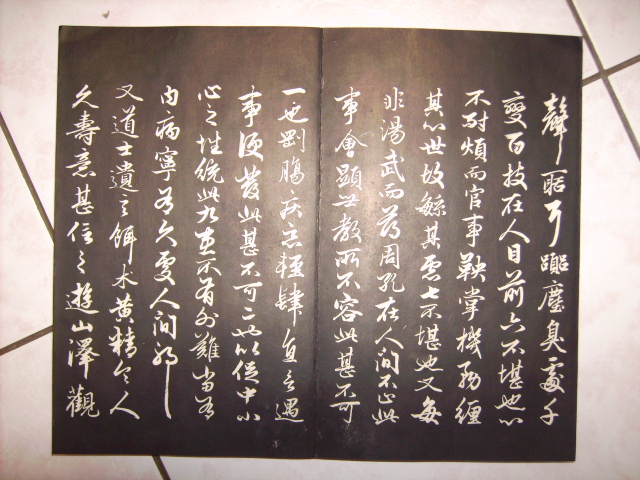 聲聒耳囂塵臭處千
變百技在人目前六不堪也心
不耐煩而官事鞅掌機務纏
其心世故繁其慮七不堪也又每
非湯武而薄周孔在人間不止此
事會顯世教所不容此甚不可
一也剛腸疾惡輕肆直言遇
事便發此甚不可二也以促中小
心之性統此九患不有外難當有
內病寧可久處人間邪
又道士遺言餌朮黃精令人
久壽意甚信之遊山澤觀